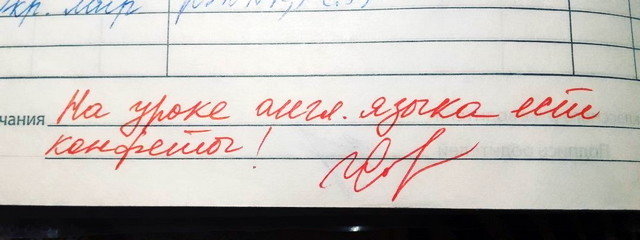 окр. мир
чания На уроке англ. языка ест
конфеты!